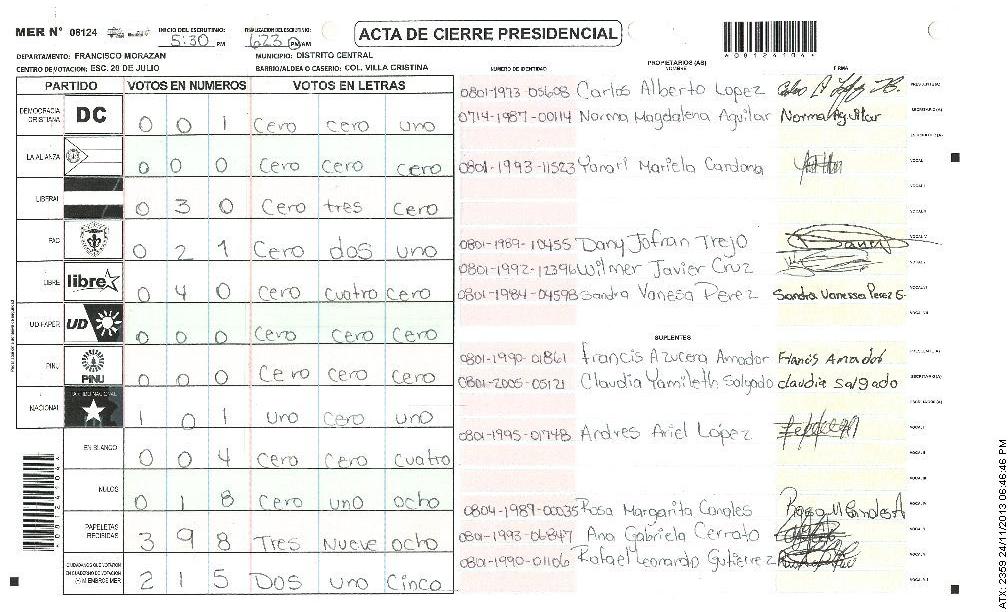 MER N° 08124
INICIO DEL ESCRUTINIO: 5:30 PM
FINALIZACION DEL ESCRUTINIO: 6:23 PM/AM
ACTA DE CIERRE PRESIDENCIAL
DEPARTAMENTO: FRANCISCO MORAZAN
MUNICIPIO: DISTRITO CENTRAL
CENTRO DE VOTACION: ESC. 20 DE JULIO
BARRIO/ALDEA O CASERIO: COL. VILLA CRISTINA
PARTIDO VOTOS EN NUMEROS VOTOS EN LETRAS
DEMOCRACIA CRISTIANA DC 0 0 1 Cero cero uno
LA ALIANZA 0 0 0 Cero Cero cero
LIBERAL 0 3 0 Cero tres Cero
PAC 0 2 1 Cero dos uno
LIBRE libre 0 4 0 Cero cuatro Cero
UD FAPER UD 0 0 0 Cero Cero Cero
PINU PINU 0 0 0 Cero Cero Cero
NACIONAL PARTIDO NACIONAL 1 0 1 uno Cero uno
EN BLANCO 0 0 4 Cero Cero Cuatro
NULOS 0 1 8 Cero uno ocho
PAPELETAS RECIBIDAS 3 9 8 Tres Nueve ocho
CIUDADANOS QUE VOTARON EN CUADERNO DE VOTACION (+) MIEMBROS MER 2 1 5 Dos uno Cinco
NUMERO DE IDENTIDAD PROPIETARIOS (AS) NOMBRE FIRMA
0801-1973-05608 Carlos Alberto Lopez PRESIDENTE(A)
0714-1987-00114 Norma Magdalena Aguilar Norma Aguilar SECRETARIO(A)
0801-1993-11523 Yanari Mariela Cardona
0801-1989-10455 Dany Jofran Trejo
0801-1992-12396 Wilmer Javier Cruz
0801-1984-04598 Sandra Vanesa Perez Sandra Vanessa Perez G.
SUPLENTES
0801-1990-01861 Francis Azucena Amador Francis Amador PRESIDENTE(A)
0801-2005-05121 Claudia Yamileth Salgado claudia salgado SECRETARIO(A)
0801-1995-01748 Andres Ariel López
0804-1987-00035 Rosa Margarita Canales Rosa M Canales A
0801-1993-06847 Ana Gabriela Cerrato
0801-1990-01106 Rafael Leonardo Gutierrez
ATX: 2359 24/11/2013 06:46:46 PM